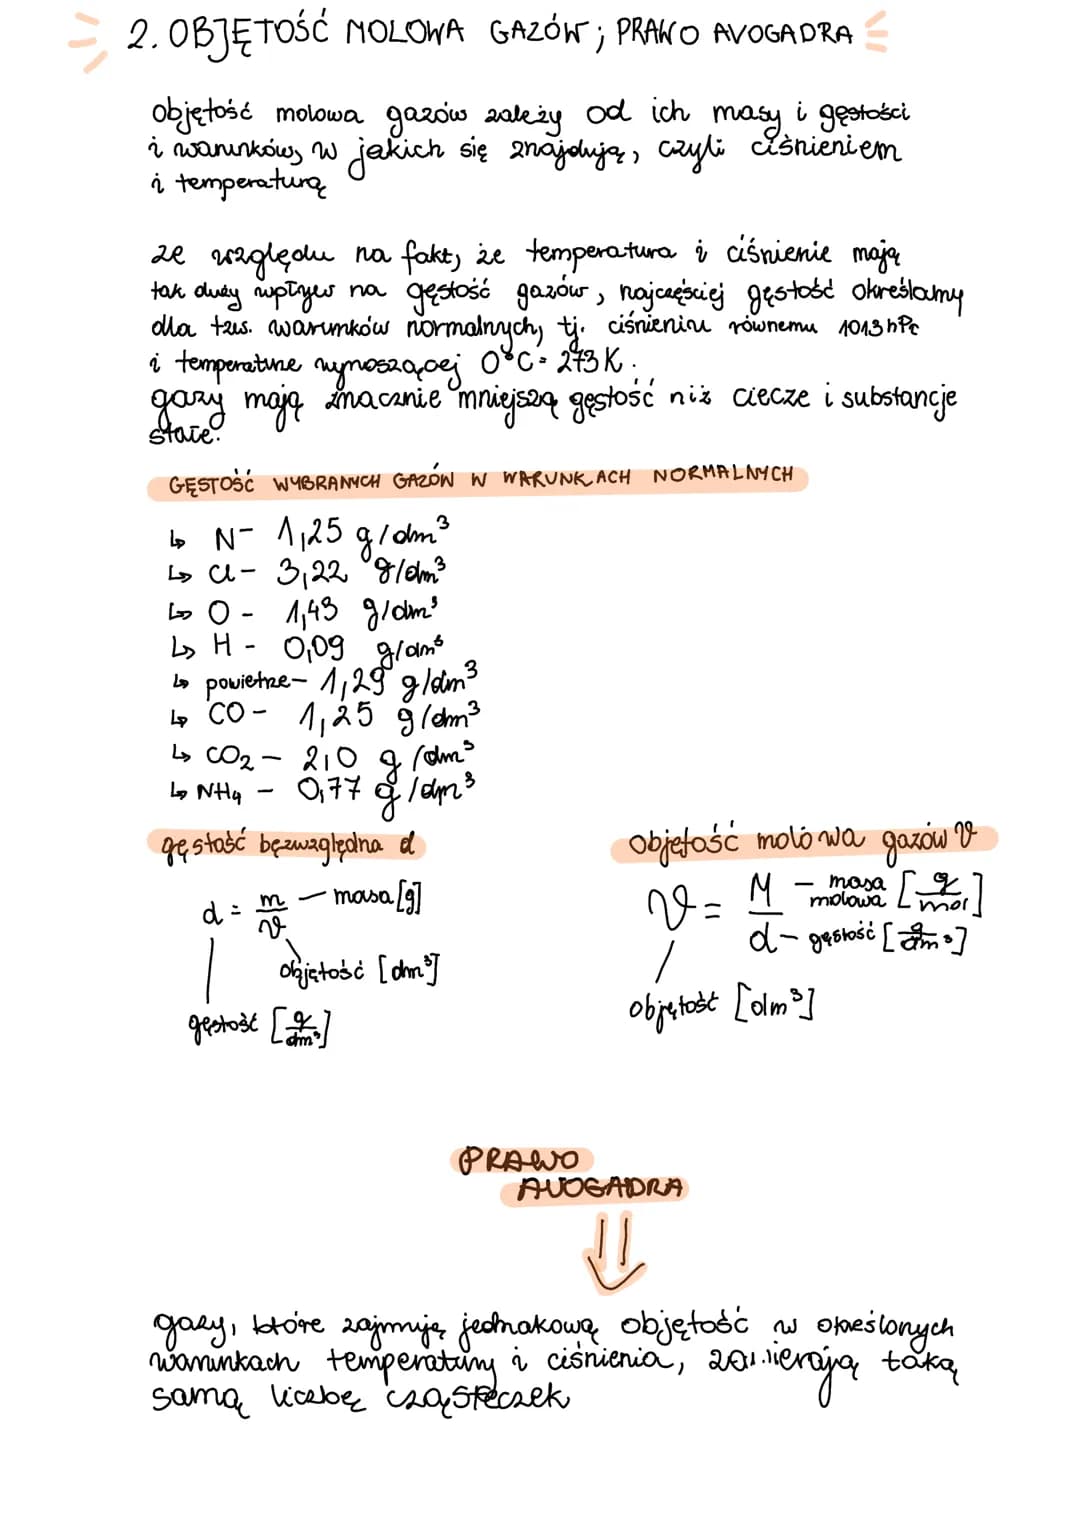 2. OBJĘTOŚĆ MOLOWA GAZÓW; PRAWO AVOGADRA
objętość molowa gazów zależy od ich masy i gęstości
i warunków, w jakich się znajdują, czyli ciśnieniem
i temperaturą
ze względu na fakt, że temperatura i ciśnienie mają
tak duży wpływ na gęstość gazów, najczęściej gęstość określamy
dla tzw. warunków normalnych, tj. ciśnieniu równemu 1013 hPa
i temperaturze wynoszącej 0°C = 273 K.
gazy mają znacznie mniejszą gęstość niż ciecze i substancje
stałe.
GĘSTOŚĆ WYBRANYCH GAZÓW W WARUNKACH NORMALNYCH
↳ N - 1,25 g/dm³
↳ Cl - 3,22 g/dm³
↳ O - 1,43 g/dm³
↳ H - 0,09 g/dm³
↳ powietrze - 1,29 g/dm³
↳ CO - 1,25 g/dm³
↳ CO₂ - 2,0 g/dm³
↳ NH₄ - 0,77 g/dm³
gęstość bezwzględna d
d = m/V
masa [g]
objętość [dm³]
gęstość [g/dm³]
objętość molowa gazów V
V = M/d
masa molowa [g/mol]
gęstość [g/dm³]
objętość [dm³]
PRAWO
AVOGADRA
gazy, które zajmują jednakową objętość w określonych
warunkach temperatury i ciśnienia, zawierają taką
samą liczbę cząsteczek